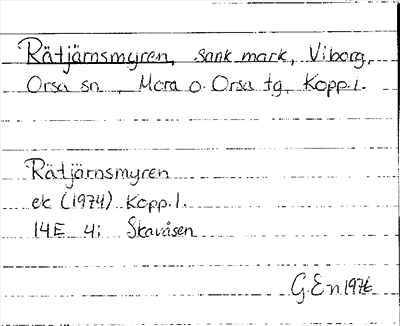 Rätjärnsmyren, sank mark, Viborg,
Orsa sn, Mora o. Orsa tg, Kopp. l.
Rätjärnsmyren
ek (1974) Kopp. l.
14E 4i Skavåsen
G. En 1976